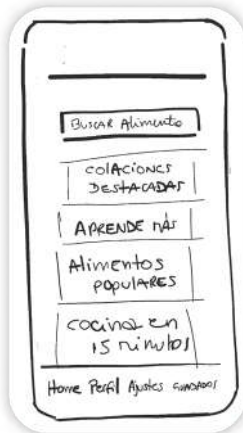 BUSCAR Alimento
COLACIONES
DESTACADAS
APRENDE MÁS
Alimentos
POPULARES
COCINAR EN
15 MINUTOS
Home Perfil Ajustes GUARDADOS